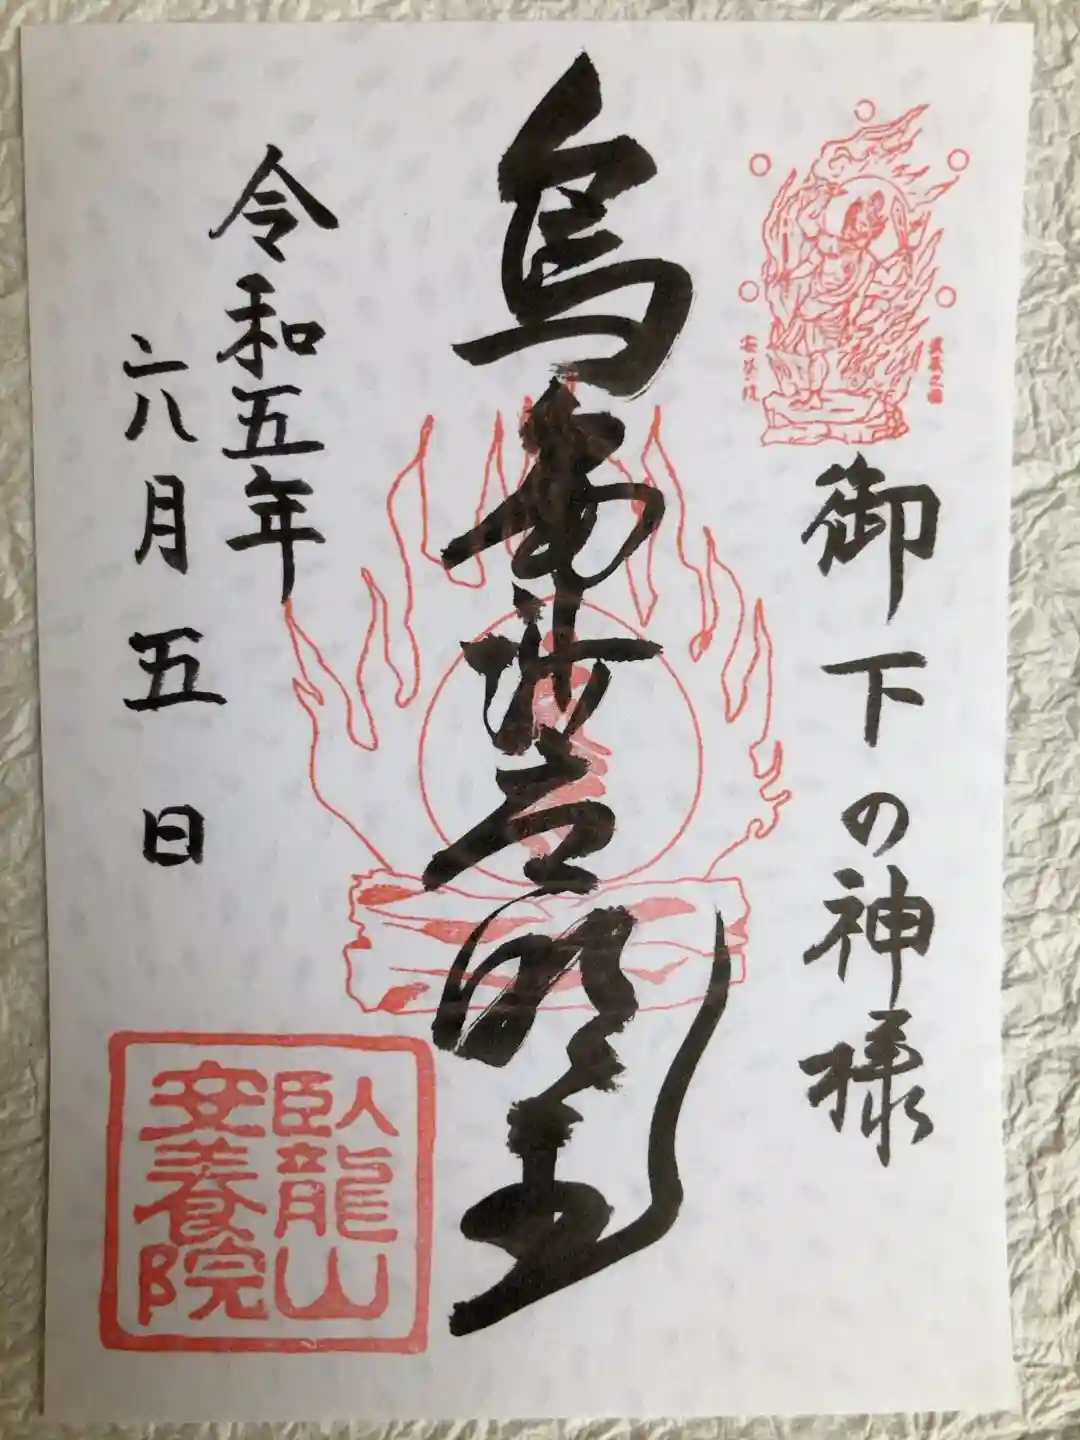 御下の神様
烏芻沙摩明王
令和五年
六月五日
臥龍山
安養院
安養院